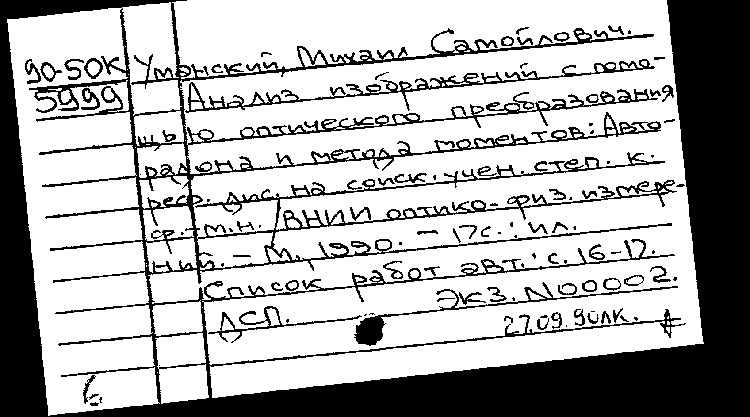 90-50К Уманский, Михаил Самойлович.
5999 Анализ изображений с помо-
щью оптического преобразования
радона и метода моментов: Авто-
реф. дис. на соиск. учен. степ. к.
ф.-м.н. / ВНИИ оптико-физ. измере-
ний. - М., 1990. - 17с.: ил.
Список работ авт.: с. 16-17.
ДСП. Экз. N00002.
27.09.90ЛК.
6